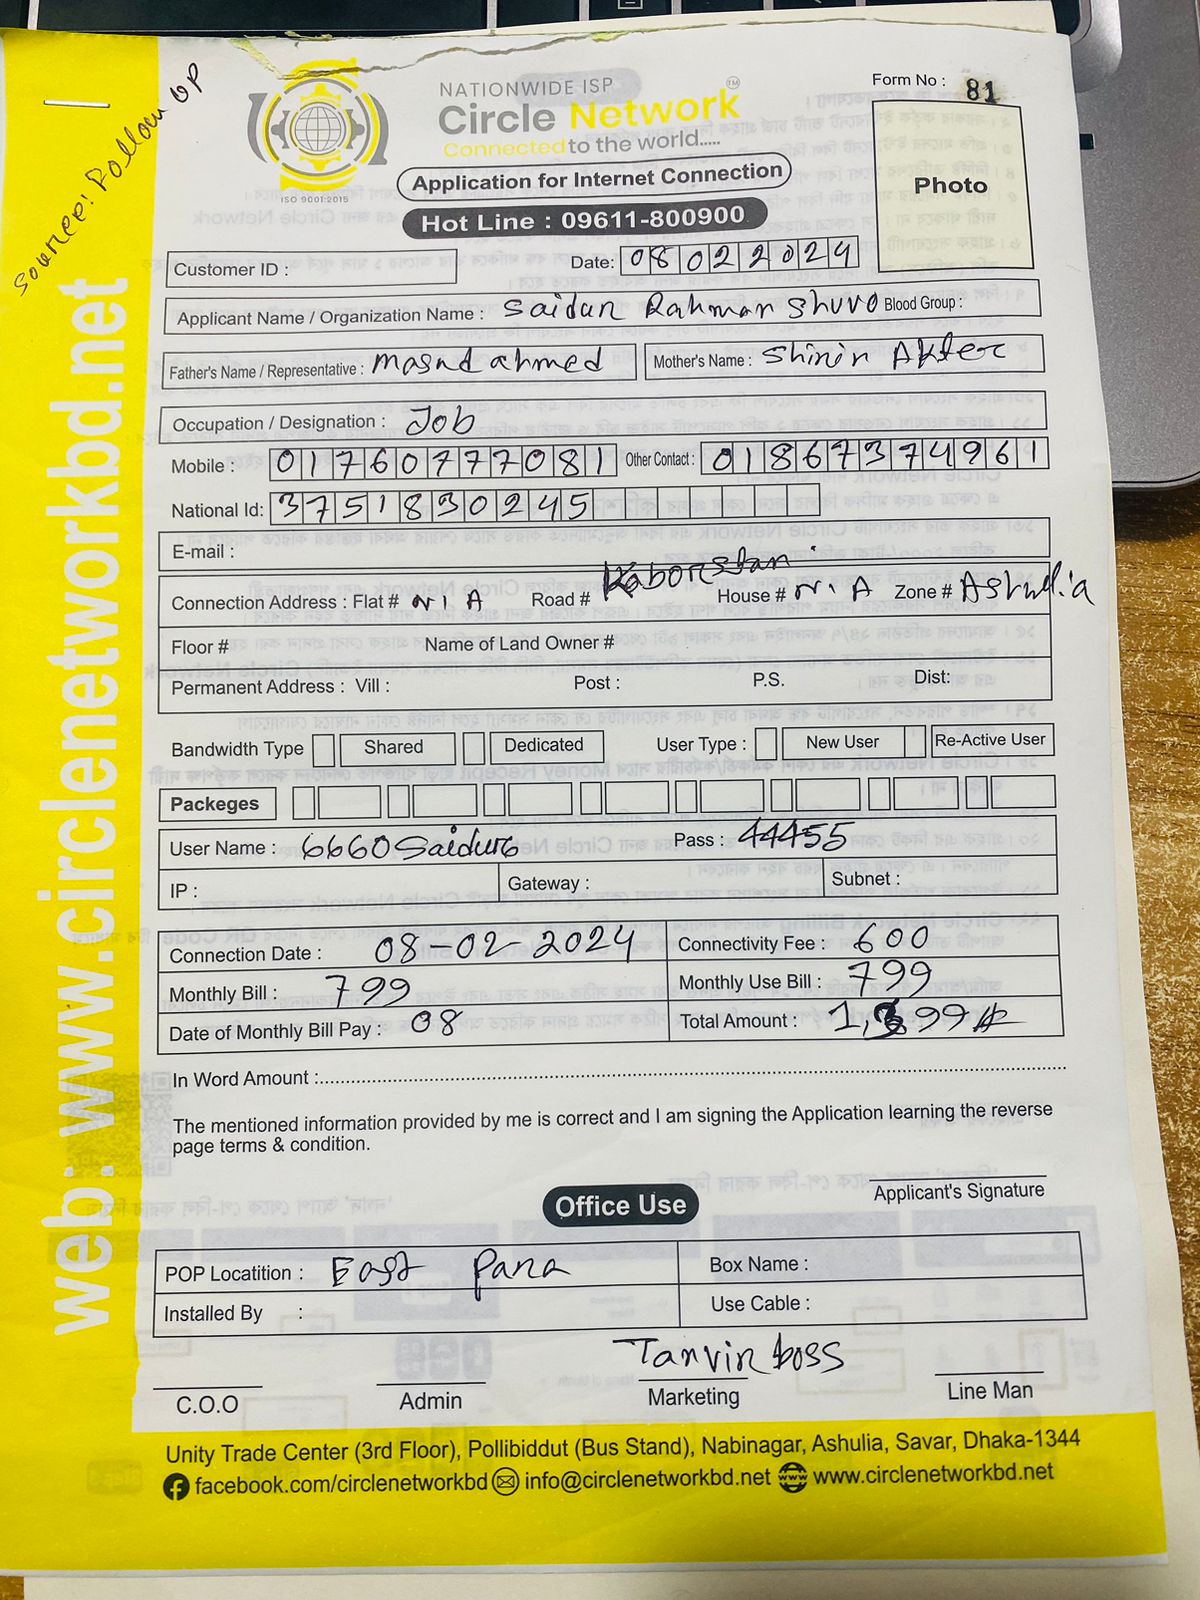 source: Follow UP
NATIONWIDE ISP
Circle Network™
Connected to the world.....
ISO 9001:2015
Application for Internet Connection
Hot Line : 09611-800900
Form No : 81
Photo
Customer ID :
Date: 08022024
Applicant Name / Organization Name : Saidur Rahman Shuvo Blood Group :
Father's Name / Representative : Masud ahmed Mother's Name : Shirin Akter
Occupation / Designation : Job
Mobile : 01760777081 Other Contact : 01867374961
National Id: 3751830245
E-mail :
Connection Address : Flat # N/A Road # Kaborstan House # N/A Zone # Ashulia
Floor # Name of Land Owner #
Permanent Address : Vill : Post : P.S. Dist:
Bandwidth Type Shared Dedicated User Type : New User Re-Active User
Packeges
User Name : 6660Saidur6 Pass : 44455
IP : Gateway : Subnet :
Connection Date : 08-02-2024 Connectivity Fee : 600
Monthly Bill : 799 Monthly Use Bill : 799
Date of Monthly Bill Pay : 08 Total Amount : 1,399
In Word Amount :
The mentioned information provided by me is correct and I am signing the Application learning the reverse
page terms & condition.
Applicant's Signature
Office Use
POP Locatition : East Para Box Name :
Installed By : Use Cable :
Tanvir boss
C.O.O Admin Marketing Line Man
Unity Trade Center (3rd Floor), Pollibiddut (Bus Stand), Nabinagar, Ashulia, Savar, Dhaka-1344
facebook.com/circlenetworkbd info@circlenetworkbd.net www.circlenetworkbd.net
web: www.circlenetworkbd.net